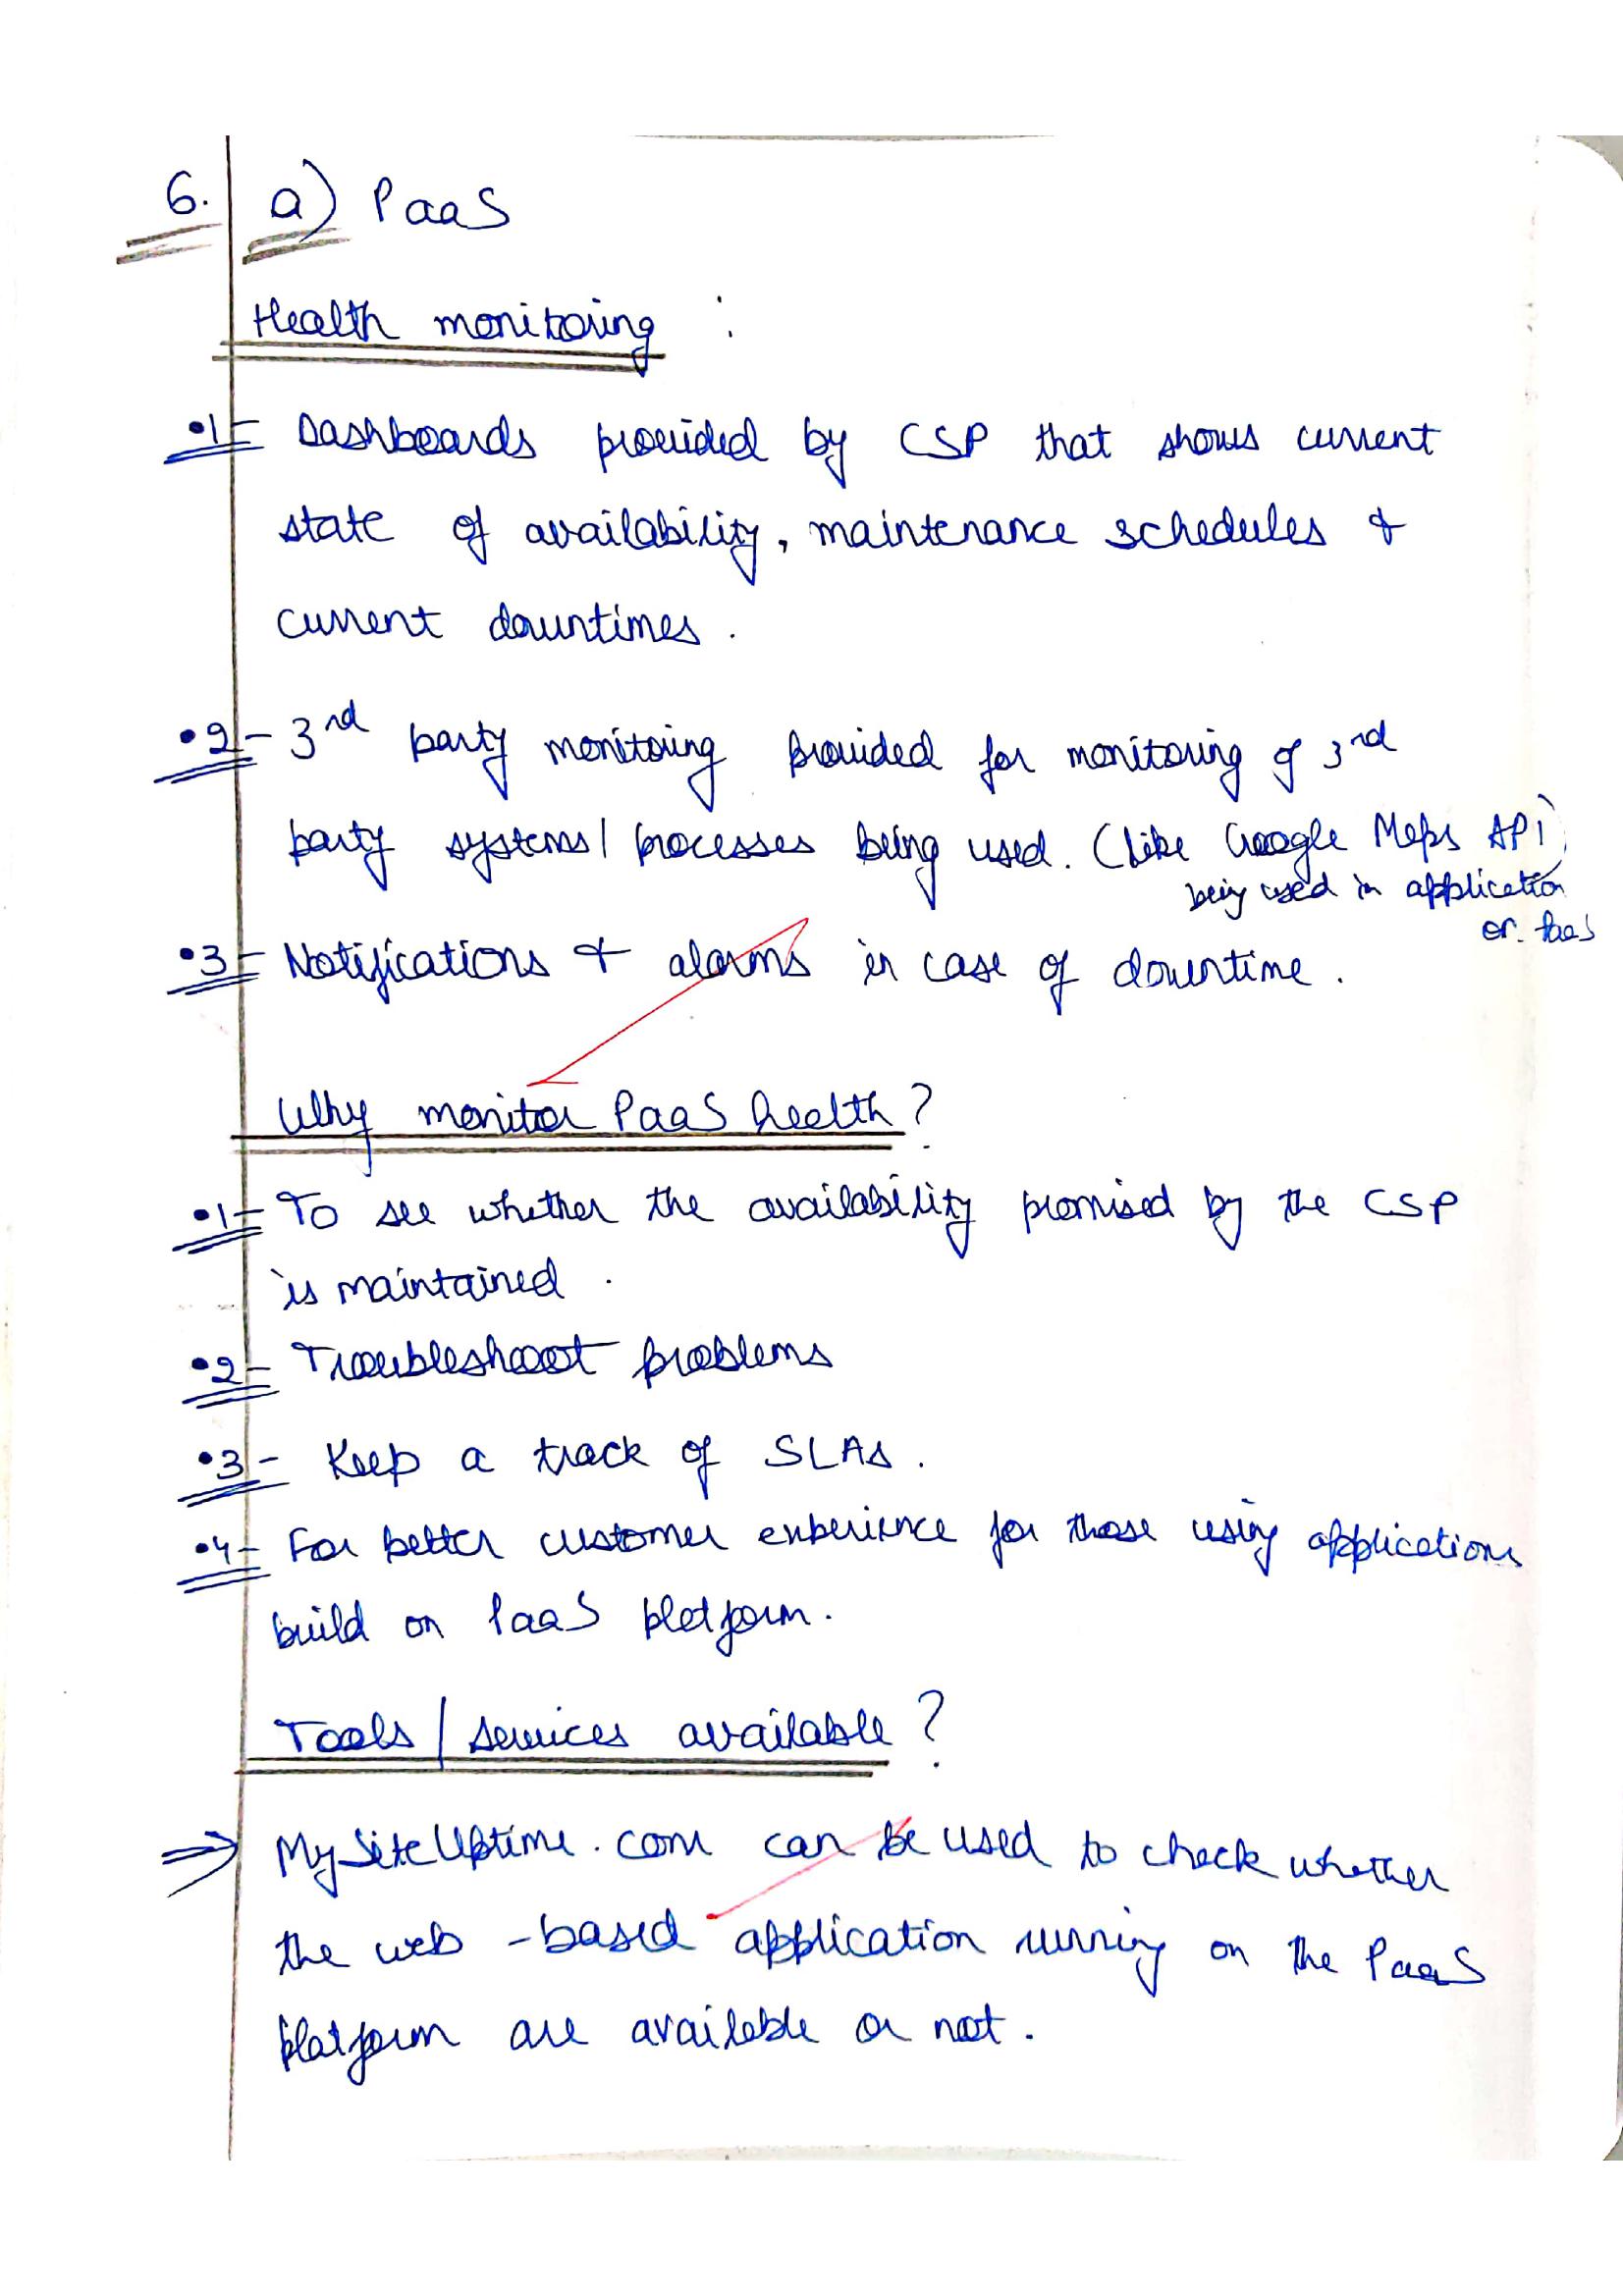 6. a) PaaS
Health monitoring :
•1- Dashboards provided by CSP that shows current
state of availability, maintenance schedules &
current downtimes.
•2- 3rd party monitoring provided for monitoring of 3rd
party systems/processes being used. (like Google Maps API)
being used in application
on PaaS
•3- Notifications & alarms in case of downtime.
Why monitor PaaS health?
•1- To see whether the availability promised by the CSP
is maintained.
•2- Troubleshoot problems
•3- Keep a track of SLAs.
•4- For better customer experience for those using applications
build on PaaS platform.
Tools/services available?
⇒ MySiteUptime.com can be used to check whether
the web-based application running on the PaaS
platform are available or not.